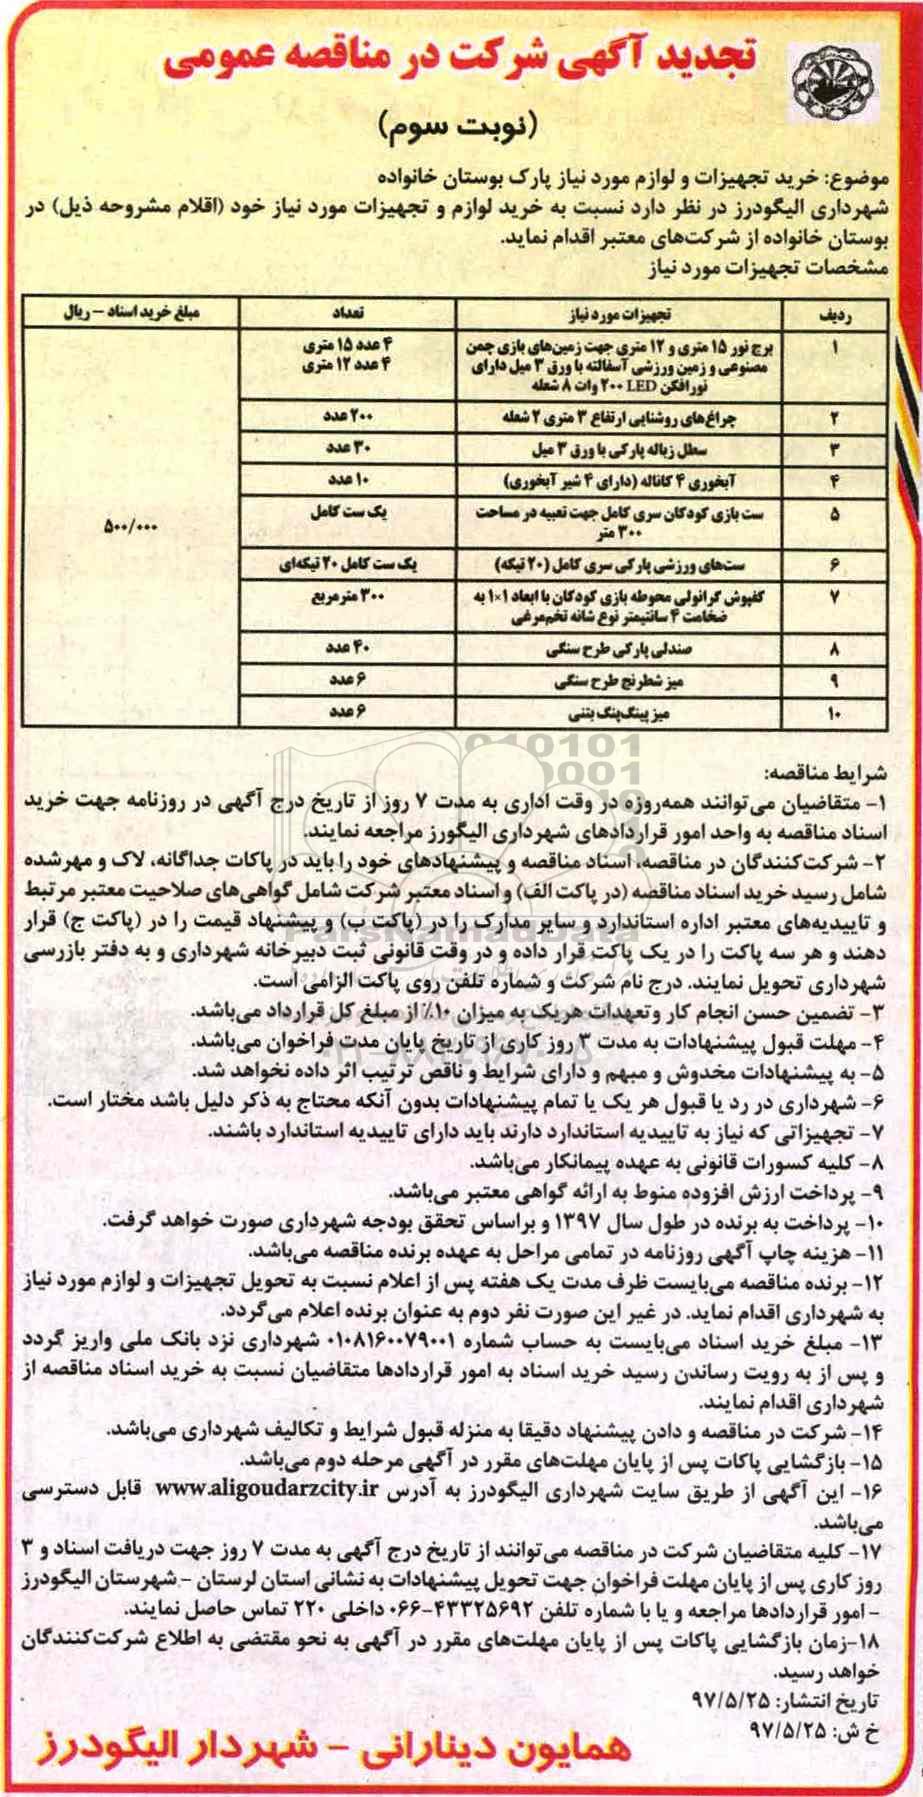 تجدید آگهی شرکت در مناقصه عمومی
(نوبت سوم)
موضوع: خرید تجهیزات و لوازم مورد نیاز پارک بوستان خانواده
شهرداری الیگودرز در نظر دارد نسبت به خرید لوازم و تجهیزات مورد نیاز خود (اقلام مشروحه ذیل) در
بوستان خانواده از شرکت‌های معتبر اقدام نماید.
مشخصات تجهیزات مورد نیاز
ردیف تجهیزات مورد نیاز تعداد مبلغ خرید اسناد – ریال
۱ برج نور ۱۵ متری و ۱۲ متری جهت زمین‌های بازی چمن ۴ عدد ۱۵ متری
مصنوعی و زمین ورزشی آسفالته با ورق ۳ میل دارای ۴ عدد ۱۲ متری
نورافکن LED ۲۰۰ وات ۸ شعله
۲ چراغ‌های روشنایی ارتفاع ۳ متری ۲ شعله ۲۰۰ عدد
۳ سطل زباله پارکی با ورق ۳ میل ۳۰ عدد
۴ آبخوری ۴ کاناله (دارای ۴ شیر آبخوری) ۱۰ عدد
۵ ست بازی کودکان سری کامل جهت تعبیه در مساحت یک ست کامل ۵۰۰/۰۰۰
۳۰۰ متر
۶ ست‌های ورزشی پارکی سری کامل (۲۰ تیکه) یک ست کامل ۲۰ تیکه‌ای
۷ کفپوش گرانولی محوطه بازی کودکان با ابعاد ۱×۱ به ۳۰۰ مترمربع
ضخامت ۴ سانتیمتر نوع شانه تخم‌مرغی
۸ صندلی پارکی طرح سنگی ۴۰ عدد
۹ میز شطرنج طرح سنگی ۶ عدد
۱۰ میز پینگ‌پنگ بتنی ۶ عدد
شرایط مناقصه:
۱- متقاضیان می‌توانند همه‌روزه در وقت اداری به مدت ۷ روز از تاریخ درج آگهی در روزنامه جهت خرید
اسناد مناقصه به واحد امور قراردادهای شهرداری الیگورز مراجعه نمایند.
۲- شرکت‌کنندگان در مناقصه، اسناد مناقصه و پیشنهادهای خود را باید در پاکات جداگانه، لاک و مهرشده
شامل رسید خرید اسناد مناقصه (در پاکت الف) و اسناد معتبر شرکت شامل گواهی‌های صلاحیت معتبر مرتبط
و تاییدیه‌های معتبر اداره استاندارد و سایر مدارک را در (پاکت ب) و پیشنهاد قیمت را در (پاکت ج) قرار
دهند و هر سه پاکت را در یک پاکت قرار داده و در وقت قانونی ثبت دبیرخانه شهرداری و به دفتر بازرسی
شهرداری تحویل نمایند. درج نام شرکت و شماره تلفن روی پاکت الزامی است.
۳- تضمین حسن انجام کار و تعهدات هریک به میزان ۱۰٪ از مبلغ کل قرارداد می‌باشد.
۴- مهلت قبول پیشنهادات به مدت ۳ روز کاری از تاریخ پایان مدت فراخوان می‌باشد.
۵- به پیشنهادات مخدوش و مبهم و دارای شرایط و ناقص ترتیب اثر داده نخواهد شد.
۶- شهرداری در رد یا قبول هر یک یا تمام پیشنهادات بدون آنکه محتاج به ذکر دلیل باشد مختار است.
۷- تجهیزاتی که نیاز به تاییدیه استاندارد دارند باید دارای تاییدیه استاندارد باشند.
۸- کلیه کسورات قانونی به عهده پیمانکار می‌باشد.
۹- پرداخت ارزش افزوده منوط به ارائه گواهی معتبر می‌باشد.
۱۰- پرداخت به برنده در طول سال ۱۳۹۷ و براساس تحقق بودجه شهرداری صورت خواهد گرفت.
۱۱- هزینه چاپ آگهی روزنامه در تمامی مراحل به عهده برنده مناقصه می‌باشد.
۱۲- برنده مناقصه می‌بایست ظرف مدت یک هفته پس از اعلام نسبت به تحویل تجهیزات و لوازم مورد نیاز
به شهرداری اقدام نماید. در غیر این صورت نفر دوم به عنوان برنده اعلام می‌گردد.
۱۳- مبلغ خرید اسناد می‌بایست به حساب شماره ۰۱۰۸۱۶۰۰۷۹۰۰۱ شهرداری نزد بانک ملی واریز گردد
و پس از به رویت رساندن رسید خرید اسناد به امور قراردادها متقاضیان نسبت به خرید اسناد مناقصه از
شهرداری اقدام نمایند.
۱۴- شرکت در مناقصه و دادن پیشنهاد دقیقا به منزله قبول شرایط و تکالیف شهرداری می‌باشد.
۱۵- بازگشایی پاکات پس از پایان مهلت‌های مقرر در آگهی مرحله دوم می‌باشد.
۱۶- این آگهی از طریق سایت شهرداری الیگودرز به آدرس www.aligoudarzcity.ir قابل دسترسی
می‌باشد.
۱۷- کلیه متقاضیان شرکت در مناقصه می‌توانند از تاریخ درج آگهی به مدت ۷ روز جهت دریافت اسناد و ۳
روز کاری پس از پایان مهلت فراخوان جهت تحویل پیشنهادات به نشانی استان لرستان - شهرستان الیگودرز
- امور قراردادها مراجعه و یا با شماره تلفن ۴۳۳۲۵۶۹۲-۰۶۶ داخلی ۲۲۰ تماس حاصل نمایند.
۱۸-زمان بازگشایی پاکات پس از پایان مهلت‌های مقرر در آگهی به نحو مقتضی به اطلاع شرکت‌کنندگان
خواهد رسید.
تاریخ انتشار: ۹۷/۵/۲۵
خ ش: ۹۷/۵/۲۵
همایون دینارانی - شهردار الیگودرز